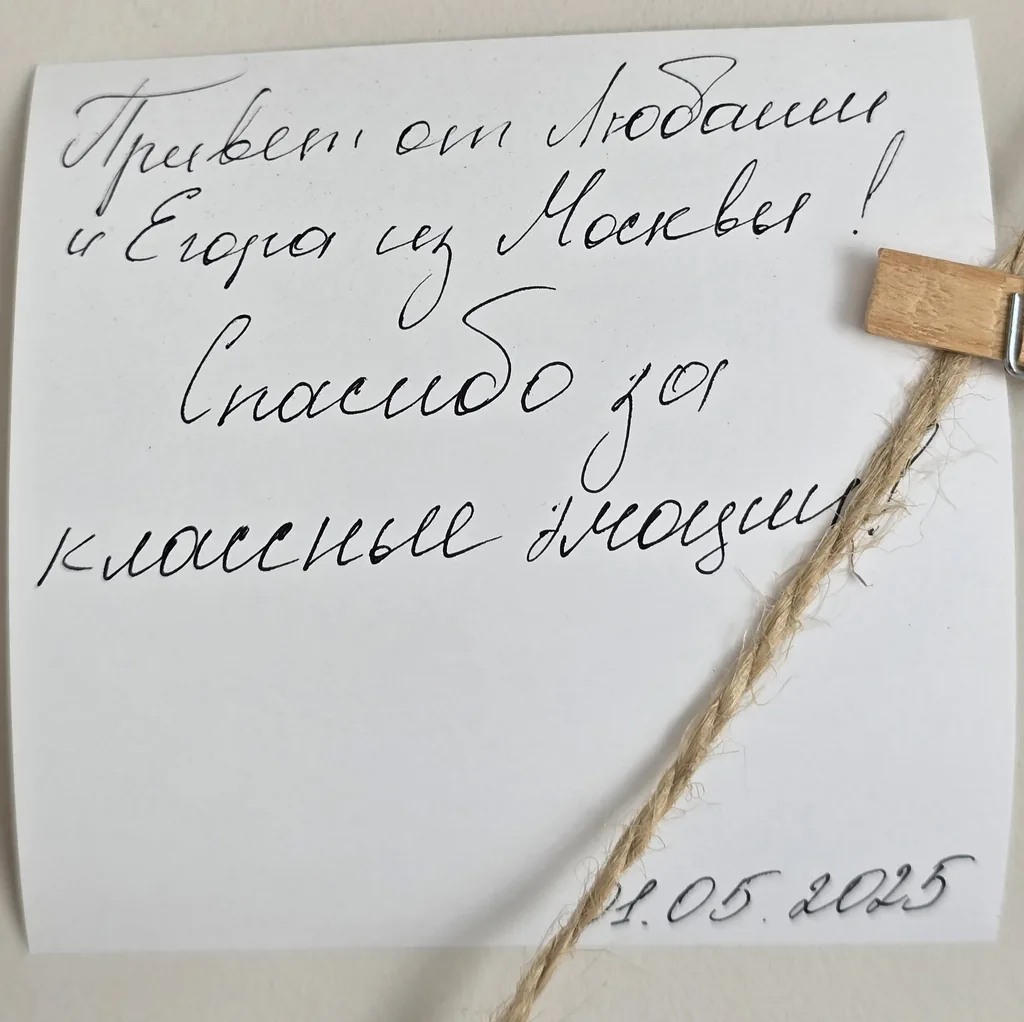 Привет от Любаши
и Егора из Москвы!
Спасибо за
классные эмоции!
01.05.2025